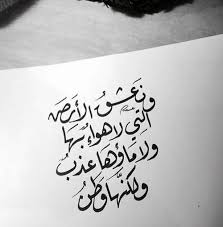 ونعشق الأرض
التي لا هواء بها
ولا ماؤها عذب
ولكنها وطن